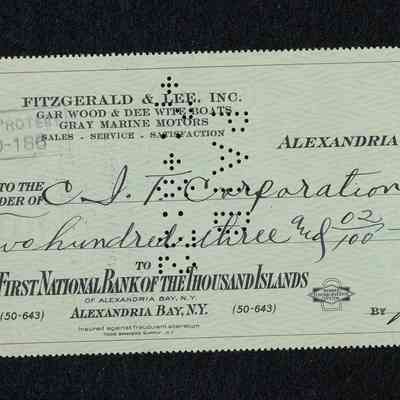 FITZGERALD & LEE, INC.
GAR WOOD & DEE WITE BOATS
GRAY MARINE MOTORS
SALES - SERVICE - SATISFACTION
PROTE
0-186
ALEXANDRIA
TO THE
DER OF C. I. T. Corporation
wo hundred three and 02/100
TO
FIRST NATIONAL BANK OF THE THOUSAND ISLANDS
OF ALEXANDRIA BAY, N.Y.
(50-643) ALEXANDRIA BAY, N.Y. (50-643)
BY
Insured against fraudulent alteration